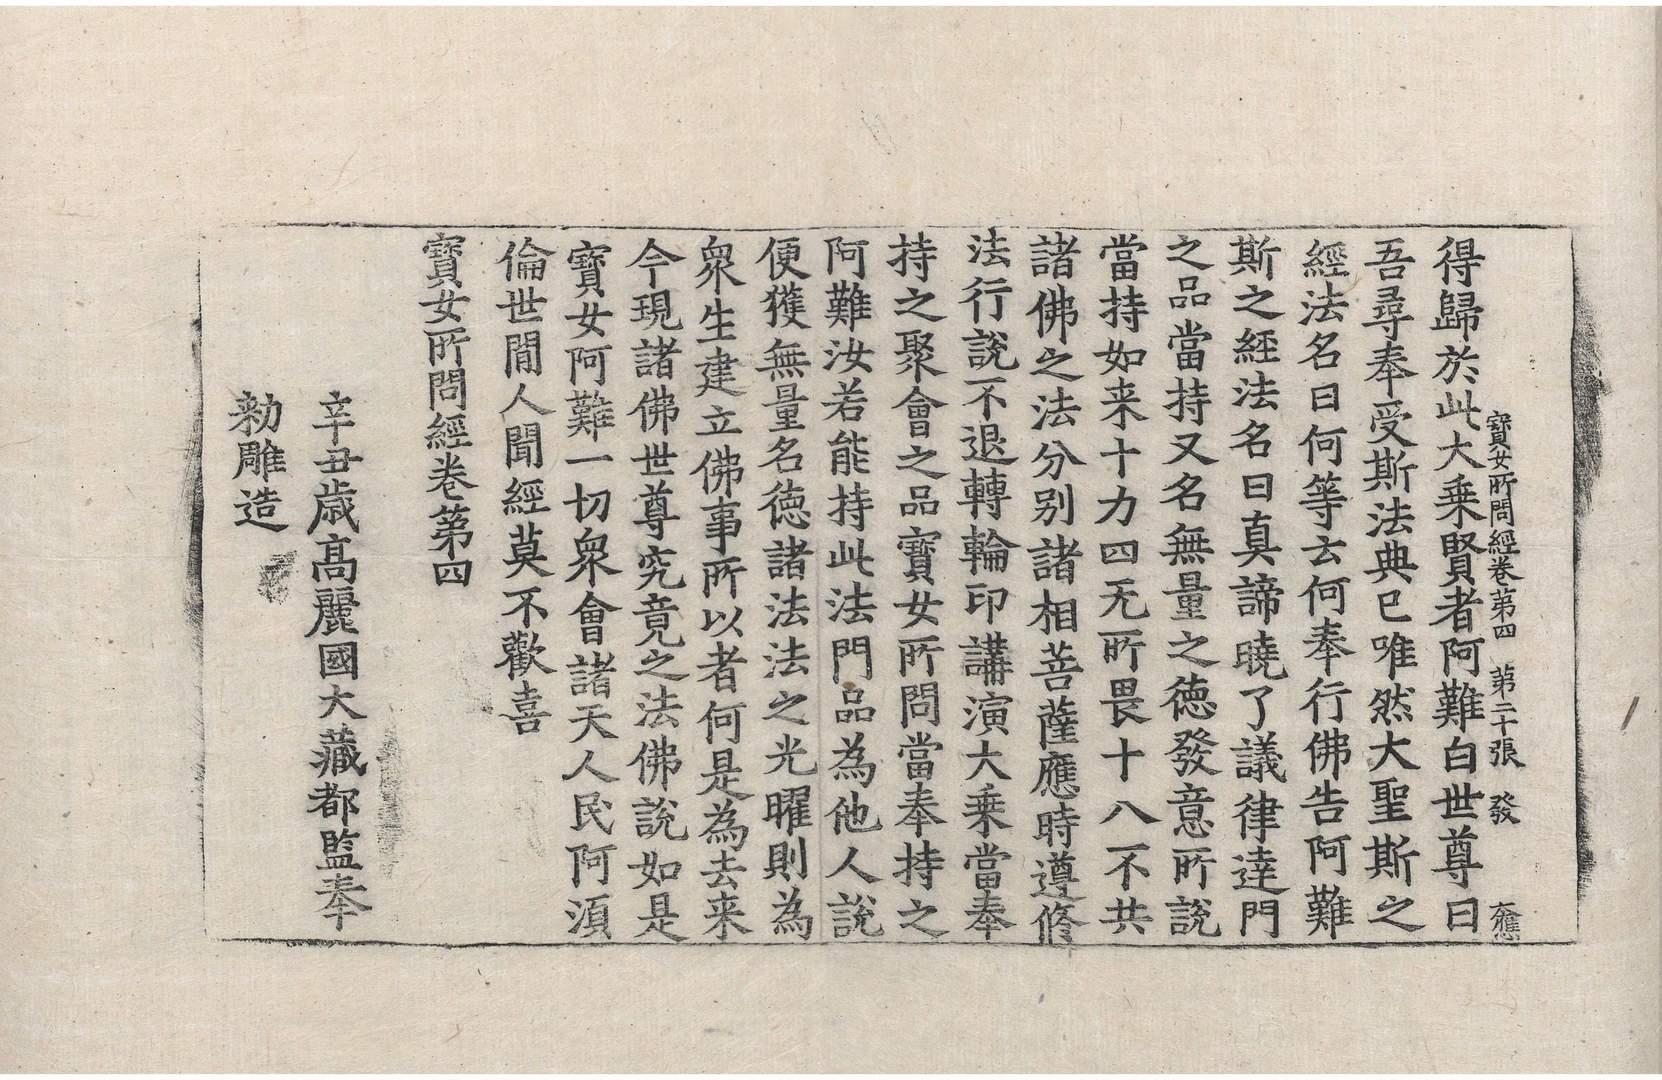 寶女所問經卷第四　第二十張　發
得歸於此大乘賢者阿難白世尊曰
吾尋奉受斯法典已唯然大聖斯之
經法名曰何等云何奉行佛告阿難
斯之經法名曰真諦曉了議律達門
之品當持又名無量之德發意所說
當持如来十力四无所畏十八不共
諸佛之法分别諸相菩薩應時遵修
法行說不退轉輪印講演大乘當奉
持之聚會之品寶女所問當奉持之
阿難汝若能持此法門品為他人說
便獲無量名德諸法法之光曜則為
衆生建立佛事所以者何是為去来
今現諸佛世尊究竟之法佛說如是
寶女阿難一切衆會諸天人民阿湏
倫世閒人聞經莫不歡喜
寶女所問經卷第四
辛丑歲高麗國大藏都監奉
勑雕造